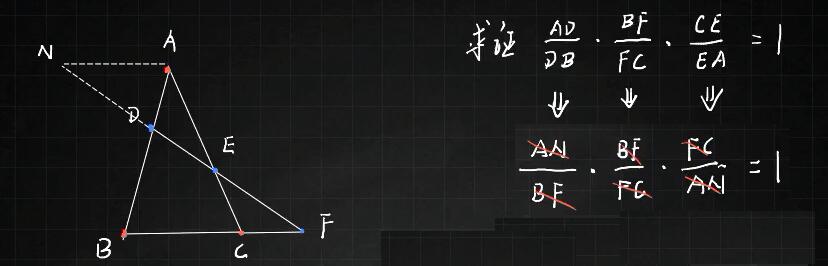 N
A
D
E
B
C
F
求证 AD/DB · BF/FC · CE/EA = 1
⇓ ⇓ ⇓
AN/BF · BF/FC · FC/AN = 1